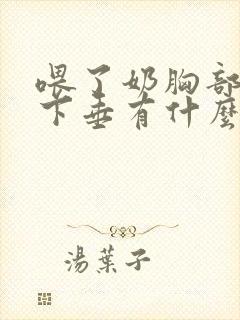 喂了奶胸部
下垂有什麽
湯葉子